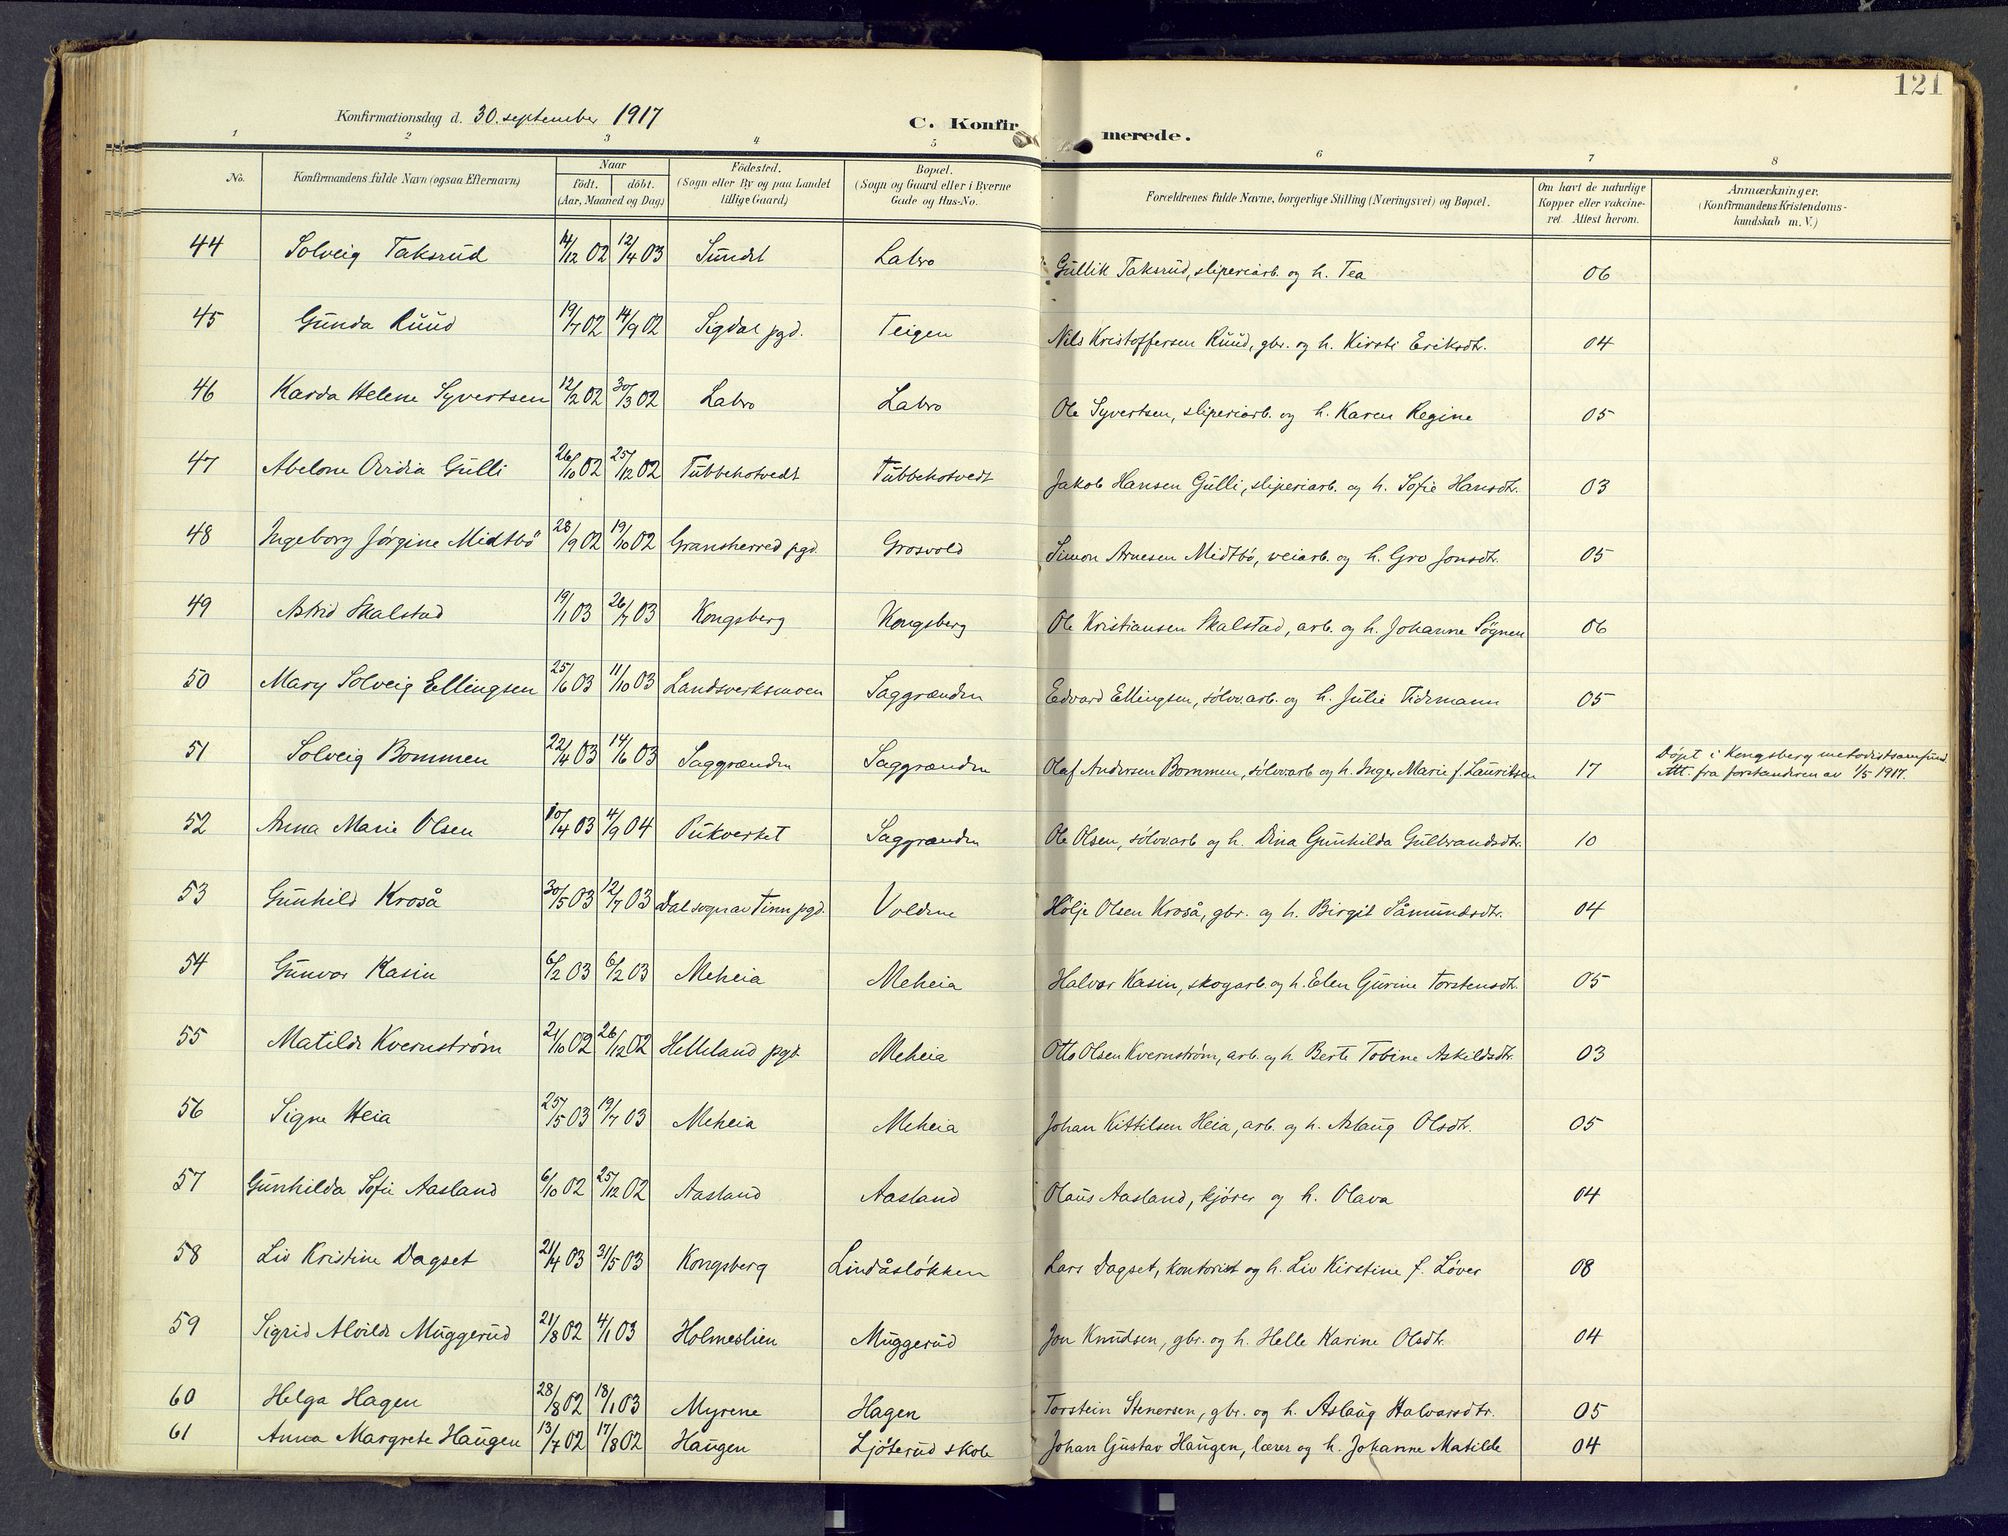 121
Konfirmationsdag d. 30. september 1917
C. Konfirmerede.
1 2 3 4 5 6 7 8
No. | Konfirmandens fulde Navn (ogsaa Efternavn) | Naar födt. döbt. (Aar, Maaned og Dag) | Födested. (Sogn eller By og paa Landet tillige Gaard) | Bopæl. (Sogn og Gaard eller i Byerne Gade og Hus-No. | Forældrenes fulde Navne, borgerlige Stilling (Næringsvei) og Bopæl. | Om havt de naturlige Kopper eller vakcineret. Attest herom. | Anmærkninger. (Konfirmandens Kristendomskundskab m. V.)
44 Solveig Taksrud 14/12 02 12/4 03 Sundet Labro Gullik Taksrud, sliperiarb. og h. Tea 06
45 Gunda Ruud 19/7 02 14/9 02 Sigdal pgd. Teigen Nils Kristoffersen Ruud, gbr. og h. Kirsti Eriksdtr. 04
46 Karda Helene Syvertsen 12/2 02 30/3 02 Labro Labro Ole Syvertsen, sliperiarb. og h. Karen Regine 05
47 Abelone Ovidia Gulli 26/10 02 25/12 02 Tubbehotvedt Tubbehotvedt Jakob Hansen Gulli, sliperiarb. og h. Sofie Hansdtr. 03
48 Ingeborg Jørgine Midtbö 28/9 02 19/10 02 Gransherred pgd. Grosvold Simon Arnesen Midtbö, veiarb. og h. Gro Jonsdtr. 05
49 Astrid Skalstad 19/1 03 26/7 03 Kongsberg Kongsberg Ole Kristiansen Skalstad, arb. og h. Johanne Søgnen 06
50 Mary Solveig Ellingsen 25/6 03 11/10 03 Landsverksmoen Saggrænden Edvard Ellingsen, sølvv.arb. og h. Julie Tidemann 05
51 Solveig Bommen 22/4 03 14/6 03 Saggrænden Saggrænden Olaf Andersen Bommen, sølvvarb og h. Inger Marie f. Lauritsen 17 Døpt i Kongsberg metodistsamfund. Att. fra forstanderen av 1/5 1917.
52 Anna Marie Olsen 10/4 03 4/9 04 Pukverket Saggrænden Ole Olsen, sølvvarb og h. Dina Gunhilda Gulbrandsdtr. 10
53 Gunhild Kroså 30/5 03 12/7 03 Dal sogn av Tinn pgd. Voldene Hølje Olsen Kroså, gbr. og h. Birgit Såmundsdtr. 04
54 Gunvor Kasin 6/2 03 6/2 03 Meheia Meheia Halvor Kasin, skogarb. og h. Elen Gurine Torstensdtr. 05
55 Matilde Kvernstrøm 21/10 02 26/12 02 Helleland pgd. Meheia Otto Olsen Kvernstrøm, arb. og h. Berte Tobine Askildsdtr. 03
56 Signe Heia 25/5 03 19/7 03 Meheia Meheia Johan Kittilsen Heia, arb. og h. Aslaug Olsdtr. 05
57 Gunhilda Sofie Aasland 6/10 02 25/12 02 Aasland Aasland Olaus Aasland, kjører og h. Olava 04
58 Liv Kristine Dagset 21/4 03 31/5 03 Kongsberg Lindåsløkken Lars Dagset, kontorist og h. Liv Kirstine f. Løver 08
59 Sigrid Alvilde Muggerud 21/8 02 4/1 03 Holmeslien Muggerud Jon Knudsen, gbr. og h. Helle Karine Olsdtr. 04
60 Helga Hagen 28/8 02 18/1 03 Myrene Hagen Torstein Stenersen, gbr. og h. Aslaug Halvorsdtr. 05
61 Anna Margrete Haugen 13/7 02 17/8 02 Haugen Ljøterud skole Johan Gustav Haugen, lærer og h. Johanne Matilde 04